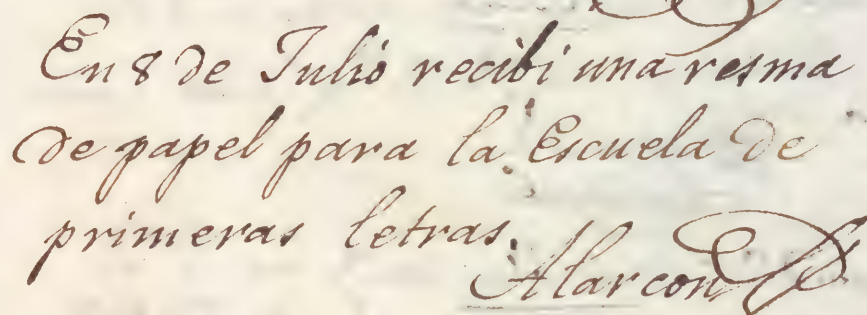 En 8 de Julio recibi una resma
de papel para la Escuela de
primeras letras.
Alarcon